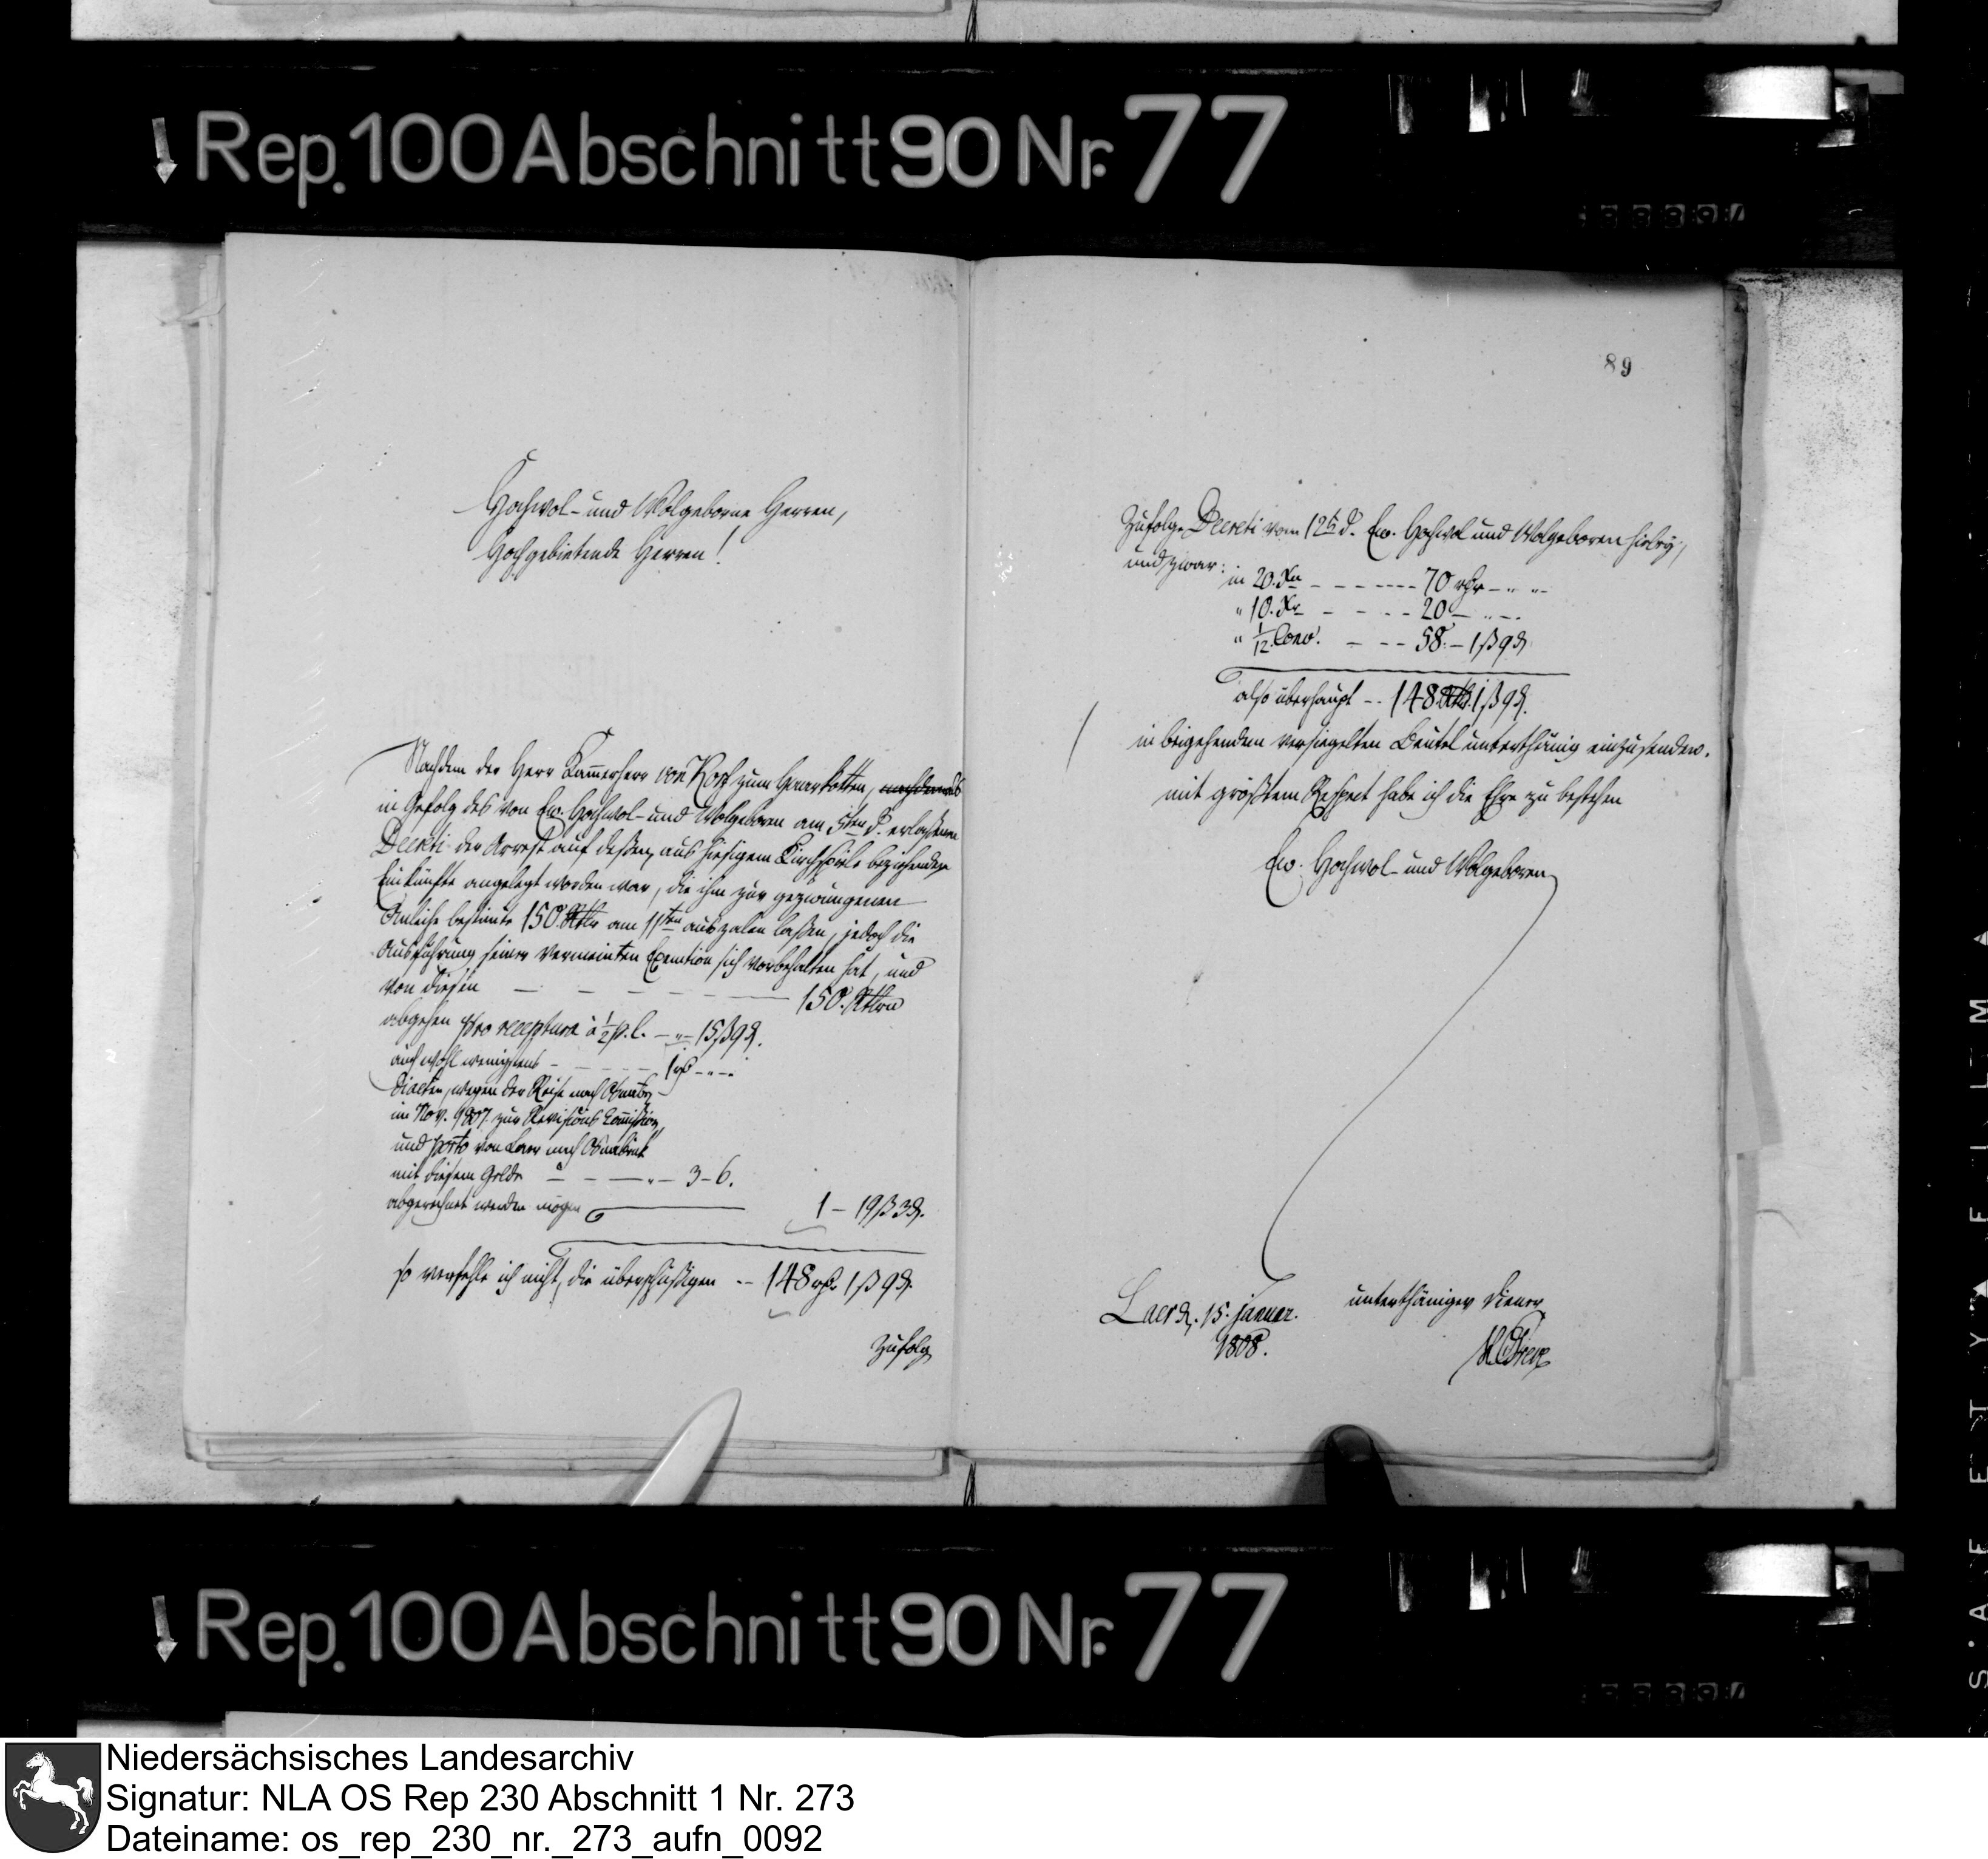 Rep. 100 Abschnitt 90 Nr. 77
Hochwol- und Wolgeborne Herren,
Hochgebietende Herren!
Nachdem der Herr Kammerherr von Korf zum Harkotten,
in Gefolg des von Ew. Hochwol- und Wolgeboren am 5ten d. erlaßenen
Decreti der Arrest auf deßen, aus hiesigem Kirchspiele beziehende
Einkünfte angelegt worden war, die ihm zur gezwungenen
Anleihe bestimte 150 Rthlr am 11ten auszalen laßen, jedoch die
Ausführung seiner vermeinten Exemtion sich vorbehalten hat, und
von diesen - - - - - - 150. Rthlrn
abgehen pro receptura à 1/2 p. C. - „ - 15 ß 9 d.
auch wohl wenigstens - - - - - 1 rthl - „ - „
Diaeten, wegen der Reise nach Osnabrk
im Nov. 1807. zur Revisions Commißion,
und porto von Laer nach Osnabrück
mit diesem Gelde - - - „ - 3 - 6.
abgerechnet werden mögen 1 - 19 ß 3 d.
so verfehle ich nicht, die überschüßigen - - 148 rthl. 1 ß 9 d.
Zufolg
89
Zufolge Decreti vom 12ten d. Ew. Hochwol und Wolgeboren hiebey,
und zwar:
in 20. Xr - - - - - - - 70 rthlr - „ „ -
„ 10. Xr - - - - - 20 - „ - „
„ 1/12. Conv. - - - 58. - 1 ß 9 d
also überhaupt - - 148 Rthl. 1 ß 9 d.
in beigehendem versiegelten Beutel unterthänig einzusenden.
mit größtem Respect habe ich die Ehre zu bestehen
Ew. Hochwol- und Wolgeboren
Laer d. 15. Januar.
1808.
unterthäniger Diener
Rep. 100 Abschnitt 90 Nr. 77
Niedersächsisches Landesarchiv
Signatur: NLA OS Rep 230 Abschnitt 1 Nr. 273
Dateiname: os_rep_230_nr._273_aufn_0092